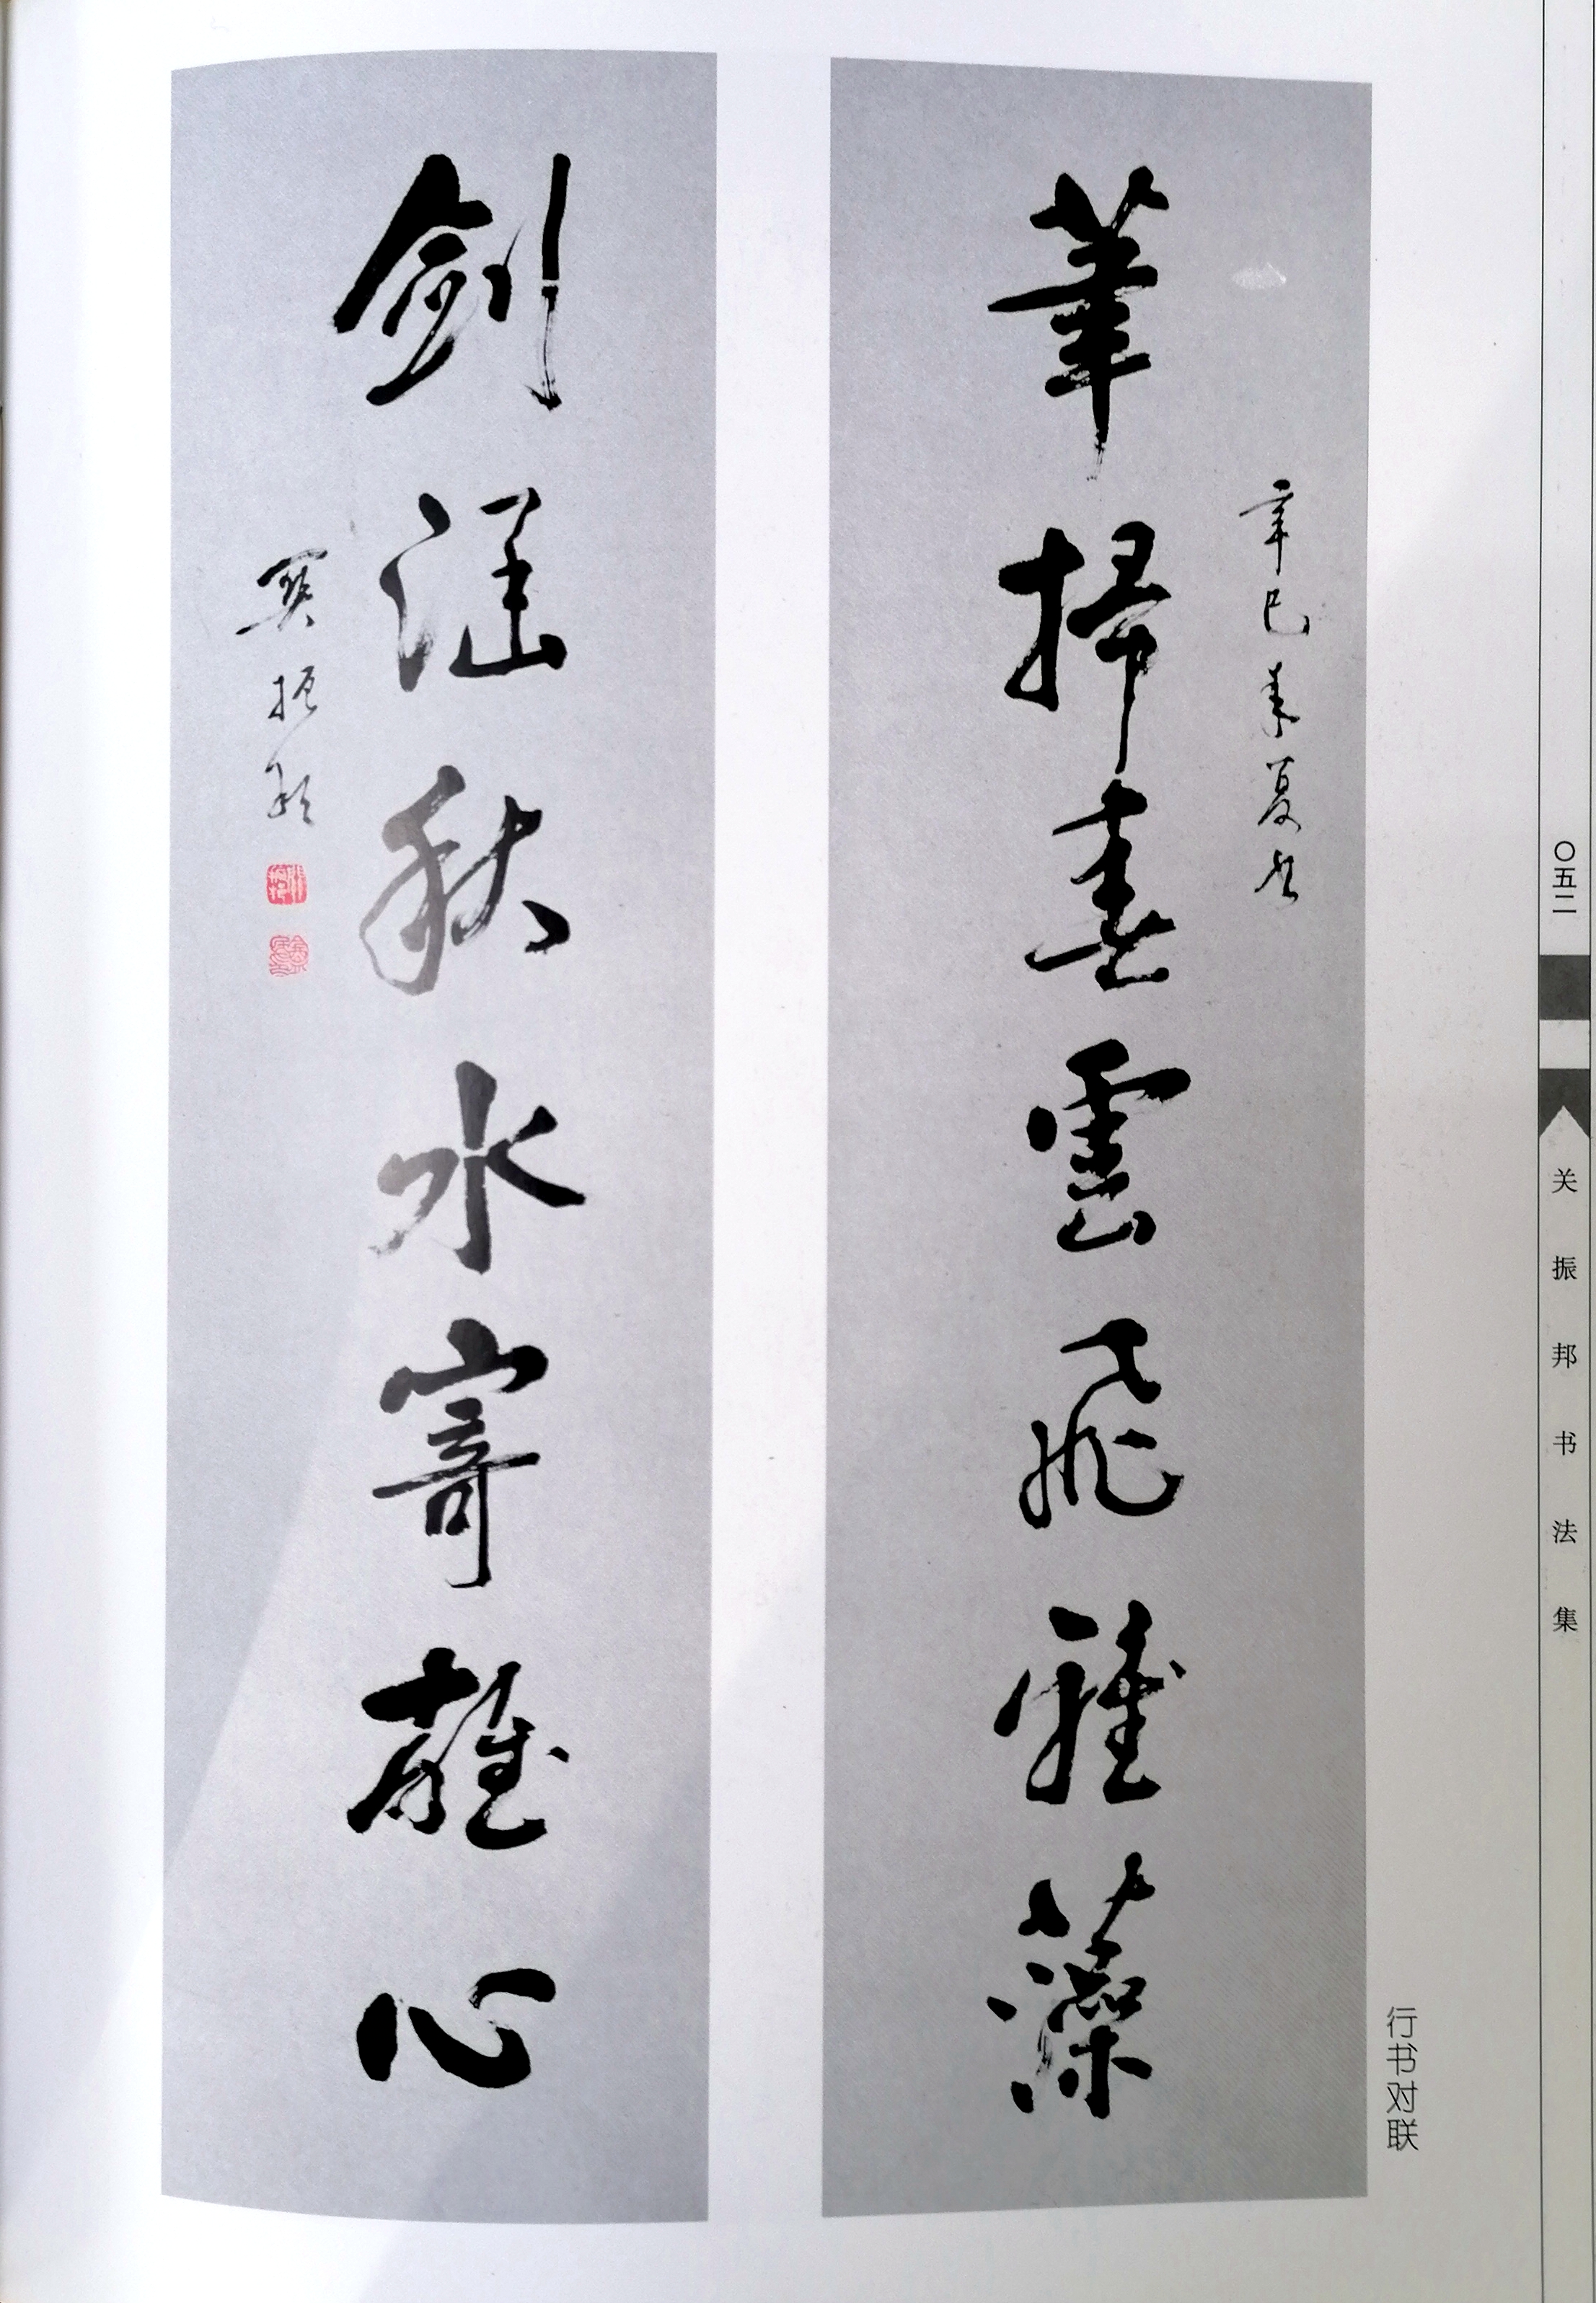 筆掃雲飛雅藻
辛巳夏书
劍涵秋水寄雄心
關振邦
行书对联
〇五二
关振邦书法集